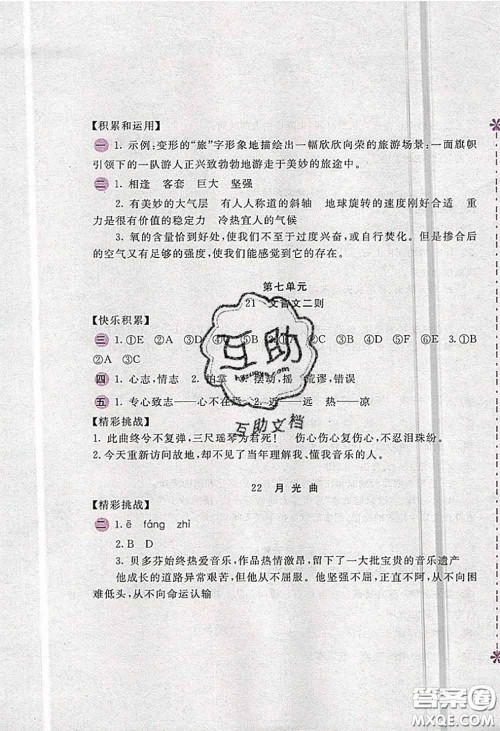 【积累和运用】
一 1. 示例:变形的“旅”字形象地描绘出一幅欣欣向荣的旅游场景:一面旗帜
引领下的一队游人正兴致勃勃地游走于美妙的旅途中。
二 1. 相逢 客套 巨大 坚强
2. 有美妙的大气层 有人人称道的斜轴 地球旋转的速度刚好合适 重
力是很有价值的稳定力 冷热宜人的气候
3. 氧的含量恰到好处,使我们不至于过度兴奋,或大发狂态,但是掺合后
的空气又有足够的强度,使我们能感觉到它的存在。
第七单元
21 文言文二则
【快乐积累】
三 1. ①E ②A ③D ④C ⑤B 2. ①A ②D ③B ④C 3. ①B
②A ③C
四 1. 心志,情志 2. 拍掌 摆动,摇 荒谬,错误
五 1. 专心致志——心不在焉 2. 近——远 热——凉
【精彩挑战】
1. 此曲终兮不复弹,三尺瑶琴为君死! 伤心伤心复伤心,不忍泪珠纷。
2. 今天重新访问故地,却不见了当年理解我、懂我音乐的人。
22 月光曲
【精彩挑战】
二 1. ē fáng zhì
2. B D
3. 贝多芬始终热爱音乐,作品热情激昂,留下了一大批宝贵的音乐遗产
他成长的道路异常艰苦,但他从不屈服。他坚强不屈,正直不阿,从不向困
难低头,从不向命运认输
互助
互助文档
答案圈
MXQE.COM